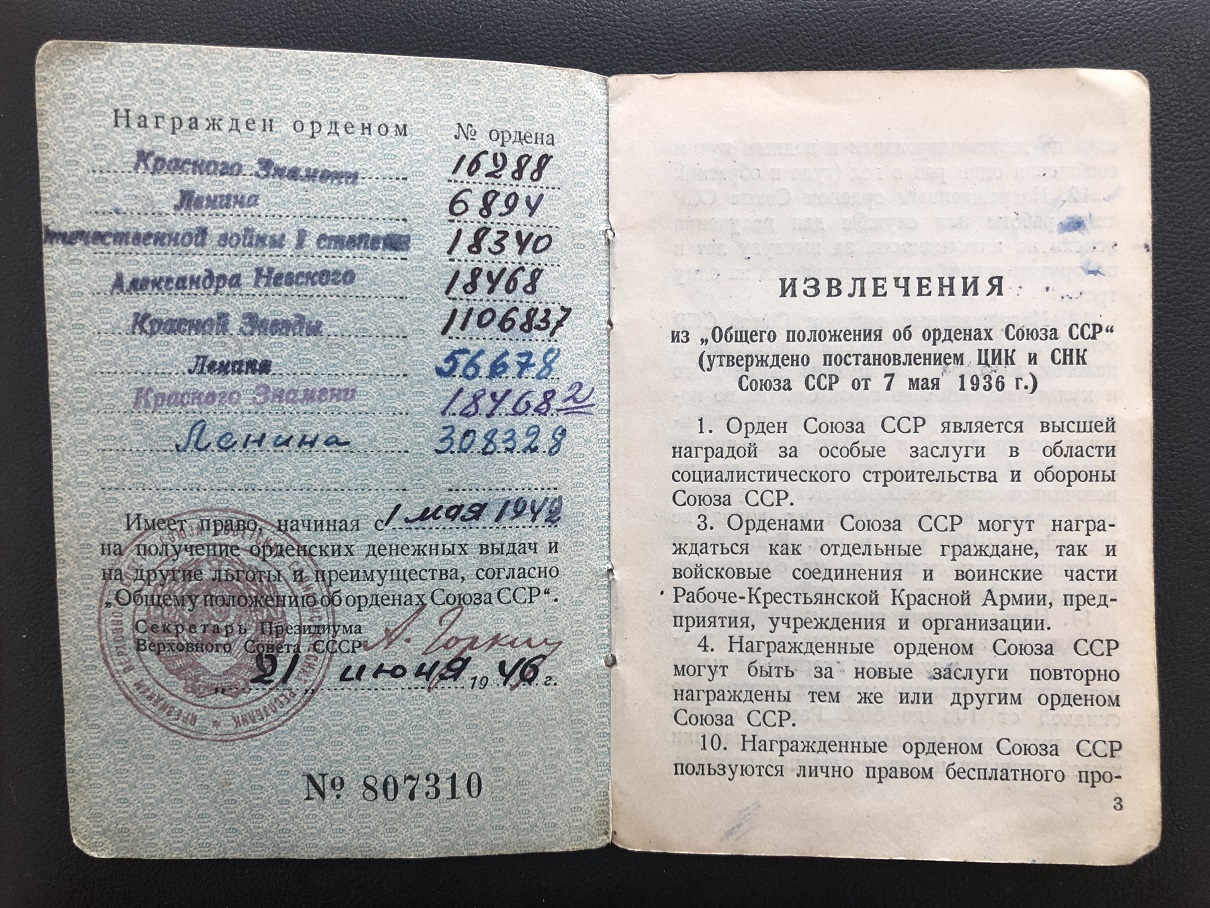 Награжден орденом № ордена
Красного Знамени 16288
Ленина 6894
Отечественной войны I степени 18340
Александра Невского 18468
Красной Звезды 1106837
Ленина 56678
Красного Знамени 18468 2
Ленина 308328
Имеет право, начиная с 1 мая 1942
на получение орденских денежных выдач и
на другие льготы и преимущества, согласно
„Общему положению об орденах Союза ССР“.
Секретарь Президиума
Верховного Совета СССР А. Горкин
„21„ июня 1946 г.
№ 807310
ИЗВЛЕЧЕНИЯ
из „Общего положения об орденах Союза ССР“
(утверждено постановлением ЦИК и СНК
Союза ССР от 7 мая 1936 г.)
1. Орден Союза ССР является высшей
наградой за особые заслуги в области
социалистического строительства и обороны
Союза ССР.
3. Орденами Союза ССР могут награ-
ждаться как отдельные граждане, так и
войсковые соединения и воинские части
Рабоче-Крестьянской Красной Армии, пред-
приятия, учреждения и организации.
4. Награжденные орденом Союза ССР
могут быть за новые заслуги повторно
награждены тем же или другим орденом
Союза ССР.
10. Награжденные орденом Союза ССР
пользуются лично правом бесплатного про-
3